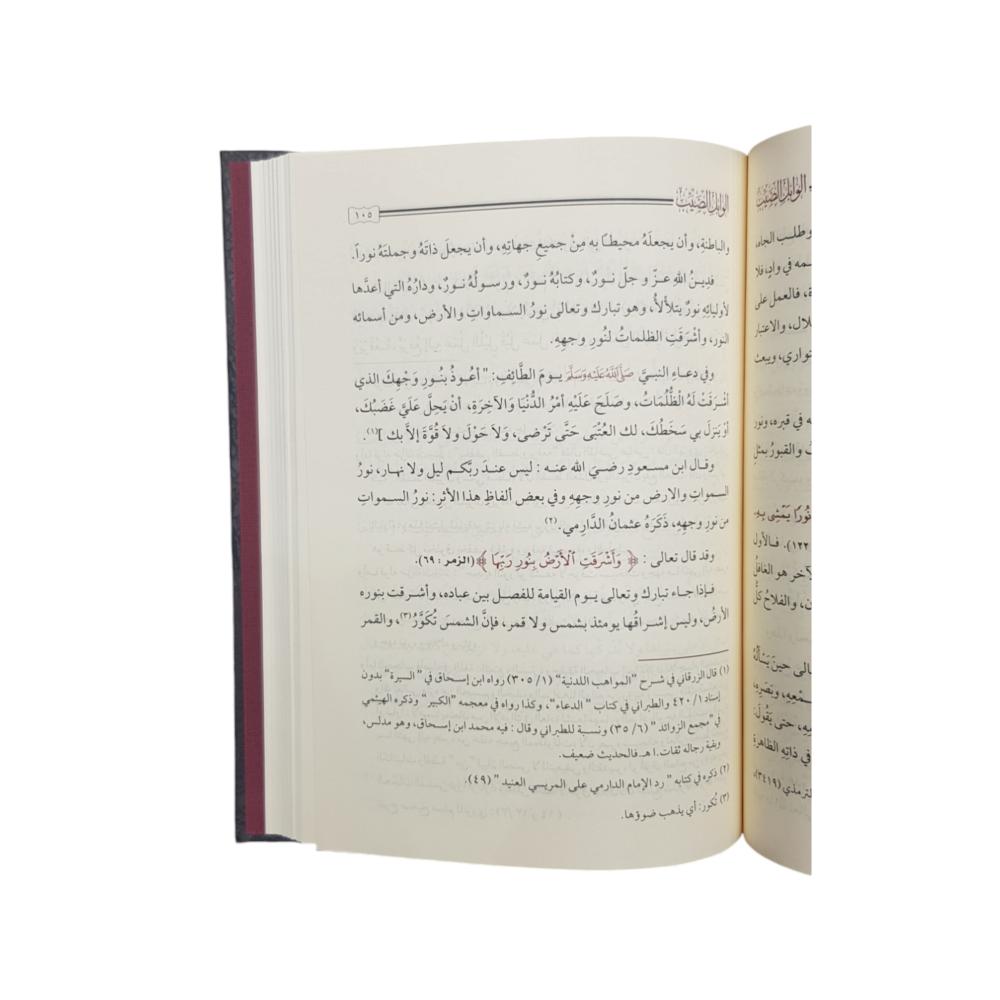 الوابل الصيب
وطلب الجاه
ـمه في وادٍ، فلا
ة، فالعمل على
لال، والاعتبار
ـتواري، ويبعث
ه في قبره، ونور
والقبورُ بمثلِ
نُورًا يَمْشِي بِهِ
١٢٢). فـالأول
لآخر هو الغافل
ن، والفلاحُ كلُّ
ـالى حينَ يَسْألهُ
ـمْعِهِ، وبَصَرِهِ،
ـهِ، حتى يَقُولَ:
في ذاتِهِ الظاهرةِ
ـترمذي (٣٤١٩)
الوابل الصيب
١٠٥
والباطنةِ، وأن يجعلَهُ محيطاً به مِنْ جميعِ جهاتِهِ، وأن يجعلَ ذاتَهُ وجملتَهُ نوراً.
فدِينُ اللهِ عزّ و جلّ نـورٌ، وكتابُهُ نـورٌ، ورسولُهُ نـورٌ، ودارُهُ التي أعدَّها
لأوليائِهِ نورٌ يتلألأُ، وهو تبارك وتعالى نورُ السـماواتِ والأرضِ، ومن أسمائه
النور، وأشْرَقَتِ الظلماتُ لنُورِ وجهِهِ.
وفي دعـاءِ النبـيَّ صَلَّى اللَّهُ عَلَيْهِ وَسَلَّمَ يـومَ الطَّائِفِ: " أعُـوذُ بنُـورِ وَجْهِكَ الذي
أشْرَقَتْ لَهُ الْظُّلُمَاتُ، وصَلَحَ عَلَيْهِ أمْرُ الدُّنْيَا وَالآخِرَةِ، أنْ يَحِلَّ عَلَيَّ غَضَبُكَ،
أوْ يَنزلَ بي سَخَطُكَ، لك العُتْبَى حَتَّى تَرْضى، وَلاَ حَوْلَ ولاَ قُوَّةَ إلاَّ بك ](١).
وقال ابن مسعودٍ رضيَ الله عنه : ليس عندَ ربِّكم ليل ولا نهار، نورُ
السمواتِ والارض من نورِ وجهِهِ وفي بعض ألفاظِ هذا الأثرِ: نورُ السمواتِ
من نورِ وجههِ، ذَكَرَهُ عثمانُ الدَّارِمي.(٢)
وقد قال تعالى : ﴿ وَأَشْرَقَتِ ٱلْأَرْضُ بِنُورِ رَبِّهَا ﴾ (الزمر : ٦٩).
فـإذا جاء تبارك وتعالى يـوم القيامة للفصـل بين عباده، وأشـرقت بنوره
الأرضُ، وليس إشـراقُها يومئذ بشمس ولا قمر، فإنَّ الشمسَ تُكَوَّرُ(٣)، والقمر
(١) قال الزرقاني في شرح "المواهب اللدنية" (١/ ٣٠٥) رواه ابن إسحاق في "السيرة" بدون
إسناد ١/ ٤٢٠ والطبراني في كتاب " الدعاء"، وكذا رواه في معجمه "الكبير" وذكره الهيثمي
في "مجمع الزوائد " (٦/ ٣٥) ونسبة للطبراني وقال : فيه محمد ابن إسحاق، وهو مدلس،
وبقية رجاله ثقات.ا هـ فالحديث ضعيف.
(٢) ذكره في كتابه " رد الإمام الدارمي على المريسي العنيد " (٤٩).
(٣) تُكور: أي يذهب ضوؤها.